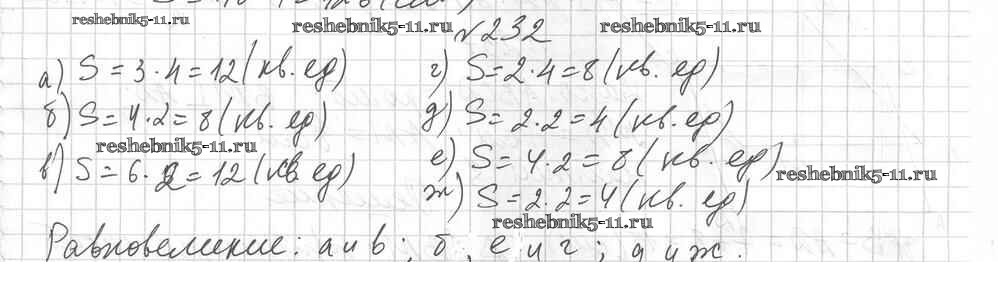 reshebnik5-11.ru
reshebnik5-11.ru №232 reshebnik5-11.ru
а) S = 3 · 4 = 12 (кв. ед)
б) S = 4 · 2 = 8 (кв. ед)
reshebnik5-11.ru
в) S = 6 · 2 = 12 (кв ед)
г) S = 2 · 4 = 8 (кв. ед)
д) S = 2 · 2 = 4 (кв. ед)
е) S = 4 · 2 = 8 (кв. ед)
reshebnik5-11.ru
ж) S = 2 · 2 = 4 (кв. ед)
reshebnik5-11.ru
Равновеликие: а и в ; б , е и г ; д и ж .